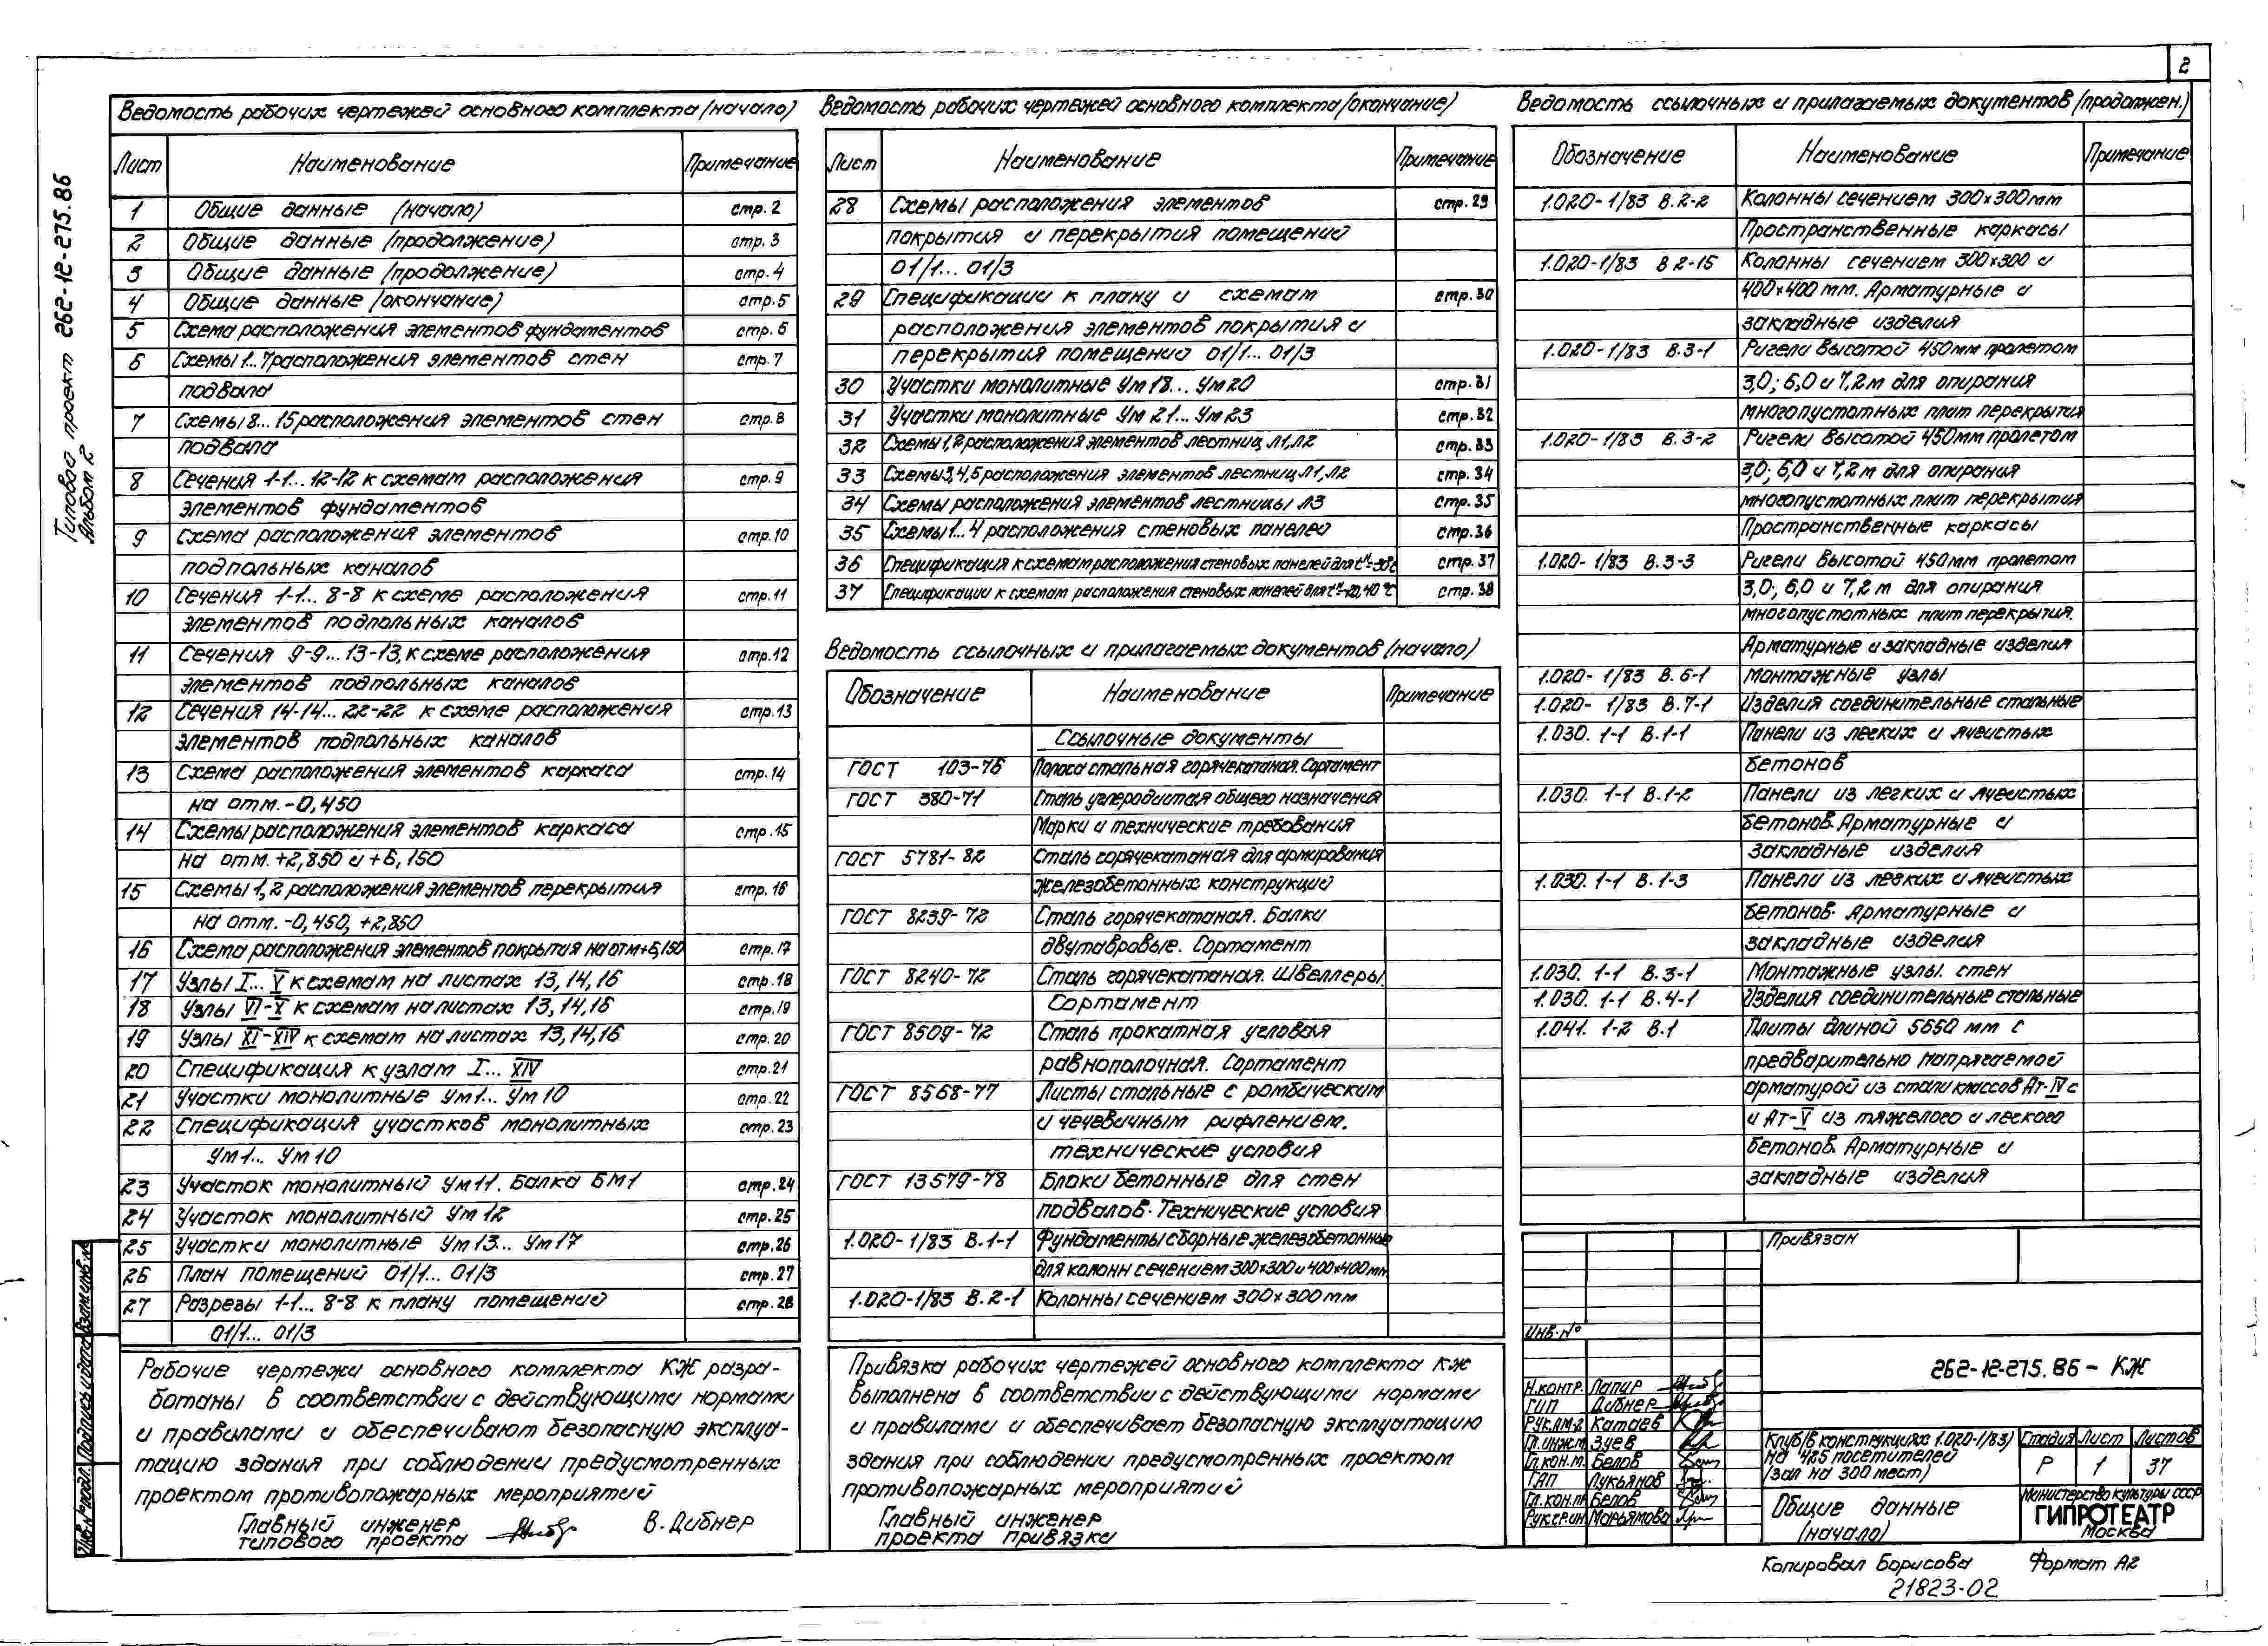 2
Типовой проект 262-12-275.86
Альбом 2
Ведомость рабочих чертежей основного комплекта (начало)
Лист Наименование Примечание
1 Общие данные (начало) стр. 2
2 Общие данные (продолжение) стр. 3
3 Общие данные (продолжение) стр. 4
4 Общие данные (окончание) стр. 5
5 Схема расположения элементов фундаментов стр. 6
6 Схемы 1...7 расположения элементов стен стр. 7
подвала
7 Схемы 8...15 расположения элементов стен стр. 8
подвала
8 Сечения 1-1...12-12 к схемам расположения стр. 9
элементов фундаментов
9 Схема расположения элементов стр. 10
подпольных каналов
10 Сечения 1-1...8-8 к схеме расположения стр. 11
элементов подпольных каналов
11 Сечения 9-9...13-13, к схеме расположения стр. 12
элементов подпольных каналов
12 Сечения 14-14...22-22 к схеме расположения стр. 13
элементов подпольных каналов
13 Схема расположения элементов каркаса стр. 14
на отм. -0,450
14 Схемы расположения элементов каркаса стр. 15
на отм. +2,850 и +6,150
15 Схемы 1,2 расположения элементов перекрытия стр. 16
на отм. -0,450, +2,850
16 Схема расположения элементов покрытия на отм +6,150 стр. 17
17 Узлы I...V к схемам на листах 13, 14, 16 стр. 18
18 Узлы VI-X к схемам на листах 13, 14, 16 стр. 19
19 Узлы XI-XIV к схемам на листах 13, 14, 16 стр. 20
20 Спецификация к узлам I...XIV стр. 21
21 Участки монолитные Ум1...Ум10 стр. 22
22 Спецификация участков монолитных стр. 23
Ум1...Ум10
23 Участок монолитный Ум11. Балка БМ1 стр. 24
24 Участок монолитный Ум12 стр. 25
25 Участки монолитные Ум13...Ум17 стр. 26
26 План помещений 01/1...01/3 стр. 27
27 Разрезы 1-1...8-8 к плану помещений стр. 28
01/1...01/3
Рабочие чертежи основного комплекта КЖ разра-
ботаны в соответствии с действующими нормами
и правилами и обеспечивают безопасную эксплуа-
тацию здания при соблюдении предусмотренных
проектом противопожарных мероприятий
Главный инженер
типового проекта В. Дибнер
Ведомость рабочих чертежей основного комплекта (окончание)
Лист Наименование Примечание
28 Схемы расположения элементов стр. 29
покрытия и перекрытия помещений
01/1...01/3
29 Спецификации к плану и схемам стр. 30
расположения элементов покрытия и
перекрытия помещений 01/1...01/3
30 Участки монолитные Ум18...Ум20 стр. 31
31 Участки монолитные Ум21...Ум23 стр. 32
32 Схемы 1,2 расположения элементов лестниц Л1, Л2 стр. 33
33 Схемы 3,4,5 расположения элементов лестниц Л1, Л2 стр. 34
34 Схемы расположения элементов лестницы Л3 стр. 35
35 Схемы 1...4 расположения стеновых панелей стр. 36
36 Спецификация к схемам расположения стеновых панелей для стр. 37
37 Спецификации к схемам расположения стеновых панелей для стр. 38
Ведомость ссылочных и прилагаемых документов (начало)
Обозначение Наименование Примечание
Ссылочные документы
ГОСТ 103-76 Полоса стальная горячекатаная. Сортамент
ГОСТ 380-71 Сталь углеродистая общего назначения
Марки и технические требования
ГОСТ 5781-82 Сталь горячекатаная для армирования
железобетонных конструкций
ГОСТ 8239-72 Сталь горячекатаная. Балки
двутавровые. Сортамент
ГОСТ 8240-72 Сталь горячекатаная. Швеллеры.
Сортамент
ГОСТ 8509-72 Сталь прокатная угловая
равнополочная. Сортамент
ГОСТ 8568-77 Листы стальные с ромбическим
и чечевичным рифлением.
технические условия
ГОСТ 13579-78 Блоки бетонные для стен
подвалов. Технические условия
1.020-1/83 В.1-1 Фундаменты сборные железобетонные
для колонн сечением 300×300 и 400×400мм
1.020-1/83 В.2-1 Колонны сечением 300×300мм
Привязка рабочих чертежей основного комплекта КЖ
выполнена в соответствии с действующими нормами
и правилами и обеспечивает безопасную эксплуатацию
здания при соблюдении предусмотренных проектом
противопожарных мероприятий
Главный инженер
проекта привязки
Ведомость ссылочных и прилагаемых документов (продолжен.)
Обозначение Наименование Примечание
1.020-1/83 В.2-2 Колонны сечением 300×300мм
Пространственные каркасы
1.020-1/83 В 2-15 Колонны сечением 300×300 и
400×400 мм. Арматурные и
закладные изделия
1.020-1/83 В.3-1 Ригели высотой 450мм пролетом
3,0; 6,0 и 7,2 м для опирания
многопустотных плит перекрытия
1.020-1/83 В.3-2 Ригели высотой 450мм пролетом
3,0; 6,0 и 7,2 м для опирания
многопустотных плит перекрытия
Пространственные каркасы
1.020-1/83 В.3-3 Ригели высотой 450мм пролетом
3,0; 6,0 и 7,2 м для опирания
многопустотных плит перекрытия.
Арматурные и закладные изделия
1.020-1/83 В.6-1 Монтажные узлы
1.020-1/83 В.7-1 Изделия соединительные стальные
1.030.1-1 В.1-1 Панели из легких и ячеистых
бетонов
1.030.1-1 В.1-2 Панели из легких и ячеистых
бетонов. Арматурные и
закладные изделия
1.030.1-1 В.1-3 Панели из легких и ячеистых
бетонов. Арматурные и
закладные изделия
1.030.1-1 В.3-1 Монтажные узлы стен
1.030.1-1 В.4-1 Изделия соединительные стальные
1.041.1-2 В.1 Плиты длиной 5650 мм с
предварительно напрягаемой
арматурой из стали классов Ат-IVс
и Ат-V из тяжелого и легкого
бетонов. Арматурные и
закладные изделия
Привязан
Инв. №
262-12-275.86-КЖ
Н.контр. Лапир
ГИП Дибнер
Рук.АМ-2 Катаев
Гл.инж.м. Зуев
Гл.кон.м. Белов
ГАП Лукьянов
Гл.кон.пр Белов
Рук.гр.ин Марьямова
Клуб (в конструкциях 1.020-1/83)
на 425 посетителей
(зал на 300 мест)
Стадия Лист Листов
Р 1 37
Общие данные
(начало)
Министерство культуры СССР
ГИПРОТЕАТР
Москва
Инв.№ подл. Подпись и дата Взам.инв.№
Копировал Борисова Формат А2
21823-02